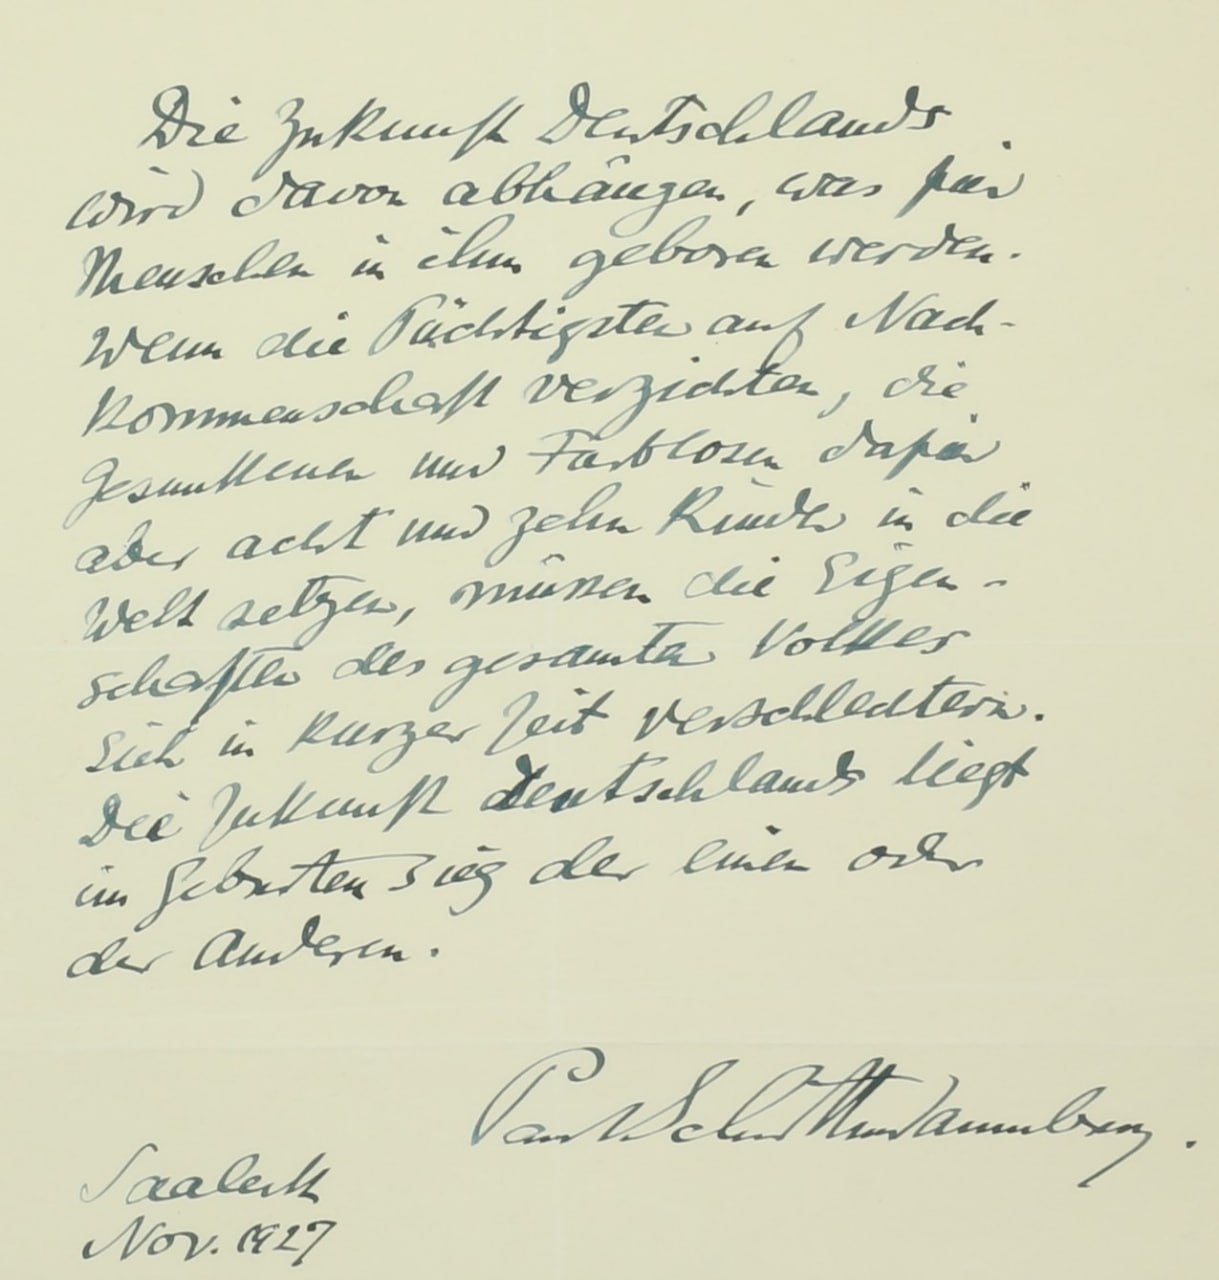 Die Zukunft Deutschlands
wird davon abhängen, was für
Menschen in ihm geboren werden.
Wenn die Tüchtigsten auf Nach-
kommenschaft verzichten, die
Gesunkenen und Farblosen dafür
aber acht und zehn Kinder in die
Welt setzen, müssen die Eigen-
schaften des gesamten Volkes
sich in kurzer Zeit verschlechtern.
Die Zukunft Deutschlands liegt
im Geburtensieg der einen oder
der Anderen.
Paul Schultze Naumburg.
Saaleck
Nov. 1927